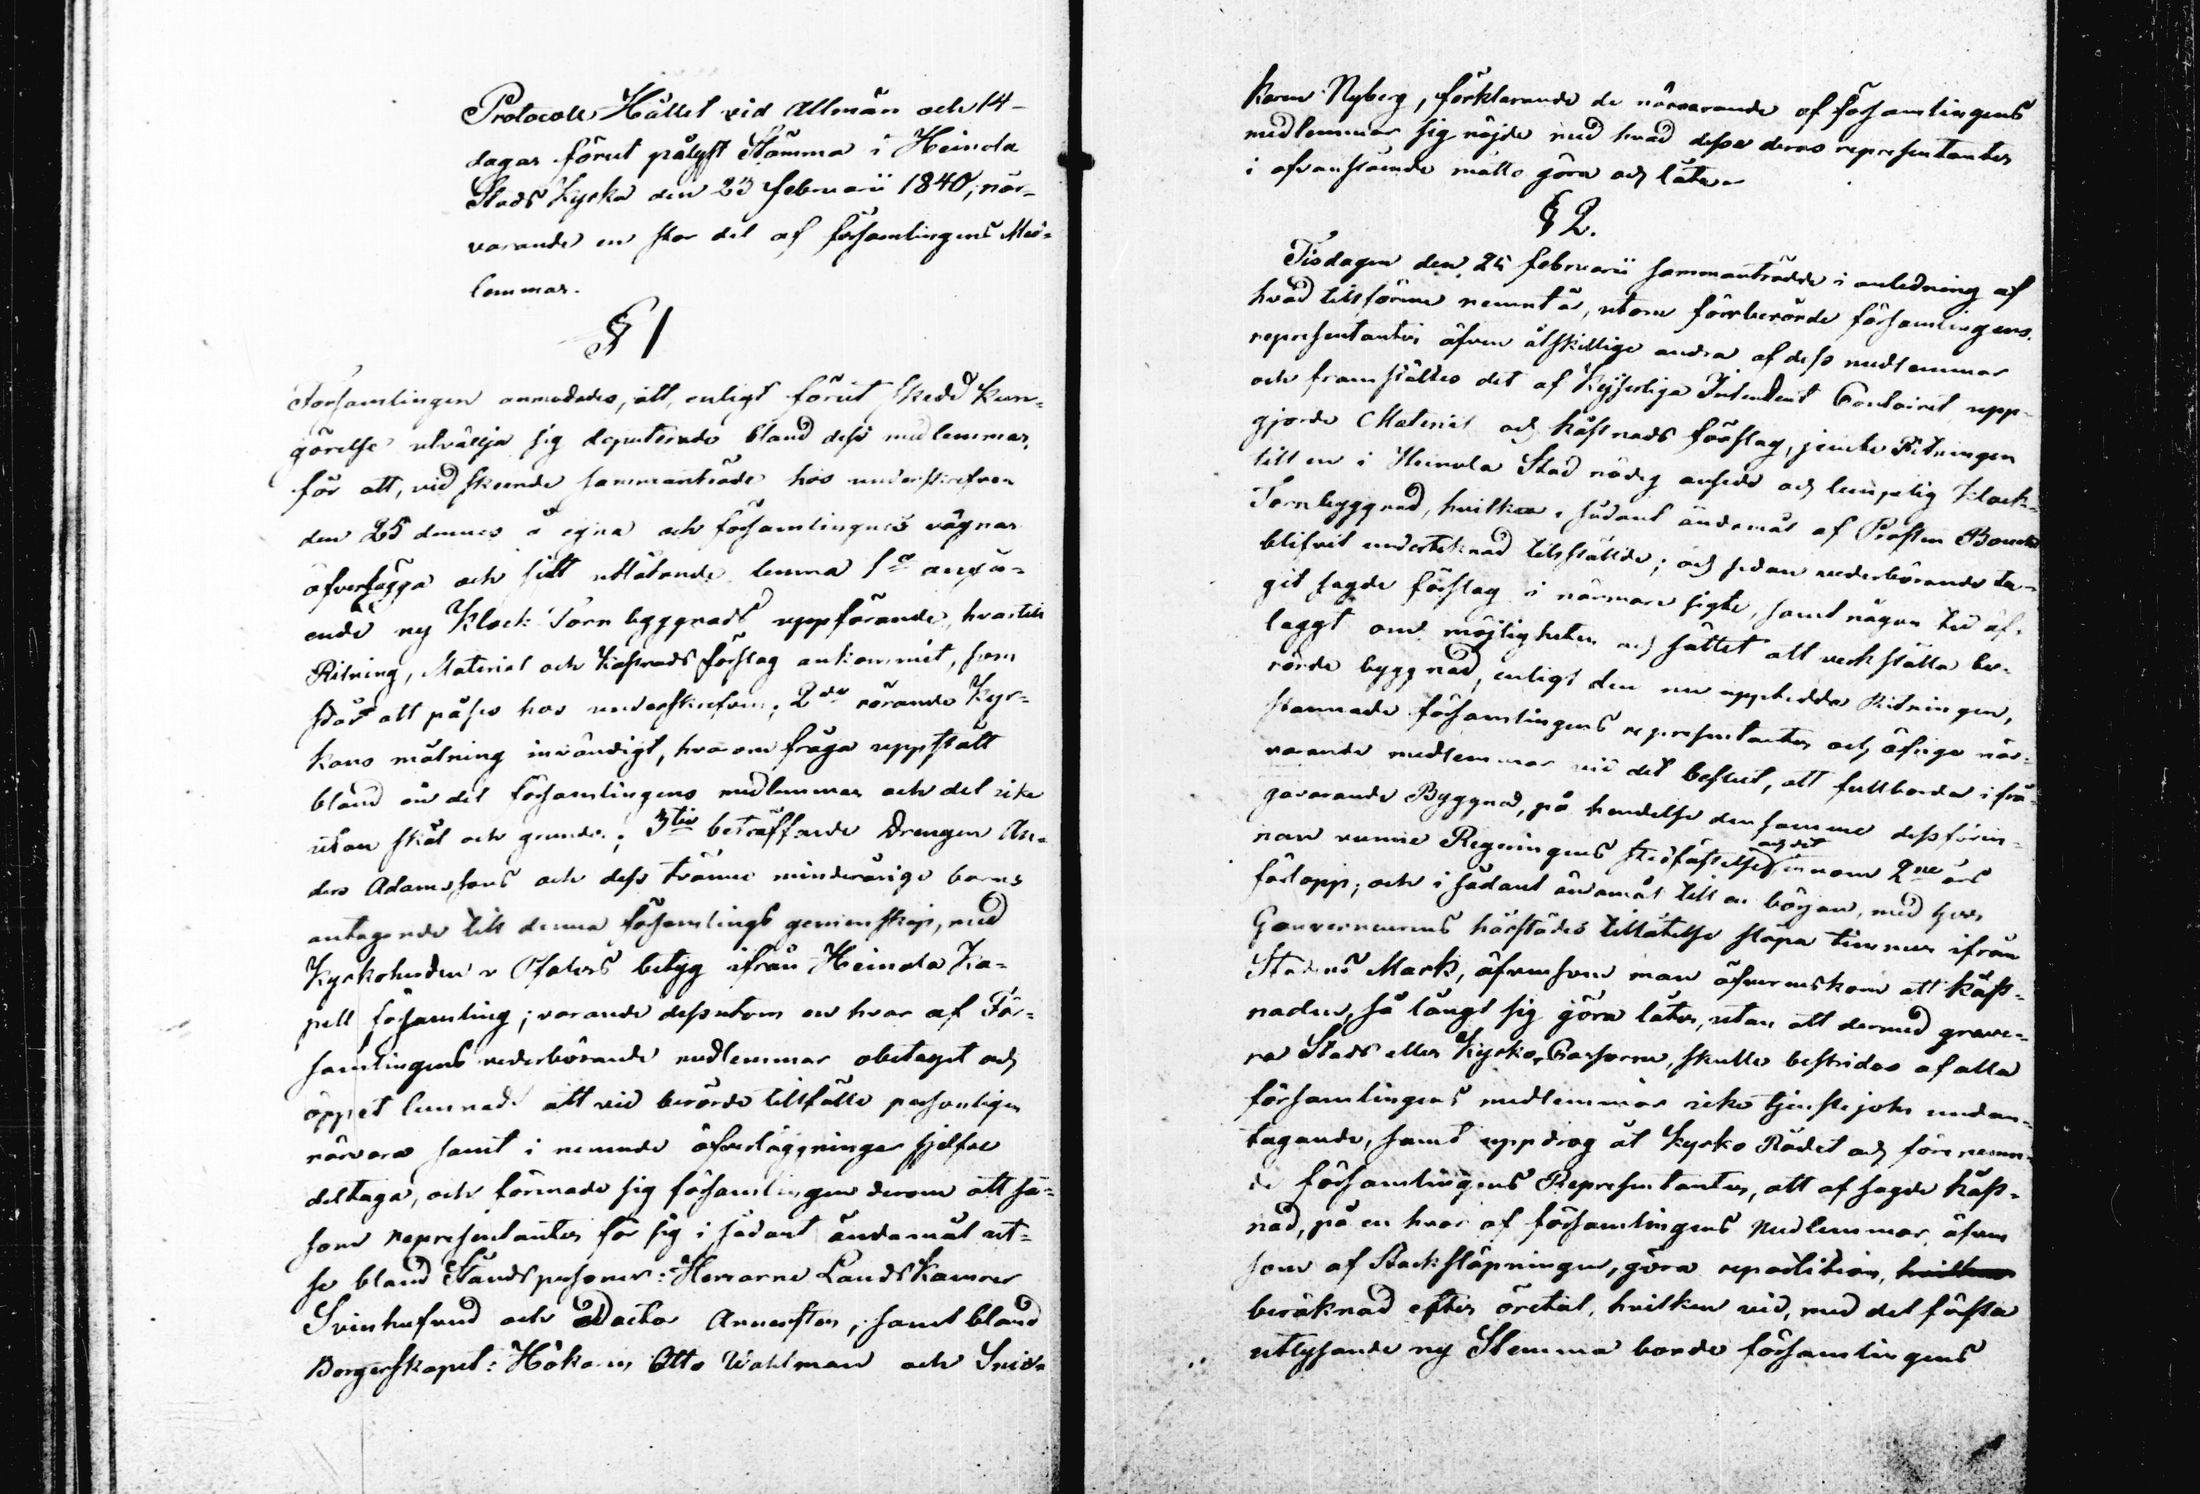 Protocoll Hållet vid Allmän och 14-
dagar förut pålyst Stämma i Heinola
Stads Kyrka den 23 februarii 1840, när-
varande en stor del af församlingens Med-
lemmar.
§ 1
Församlingen anmodades, att, enligt förut skedd kun-
görelse utvällja sig deputerade bland dess medlemmar,
för att, vid skeende sammanträde hos underskrefven
den 25 dennes å egna och församlingens vägnar
öfverlägga och sitt utlåtande lemna 1o angå-
ende ny Klock Torn byggnads uppförande, hvartill
Ritning, Material och Kåstnads förslag ankommit, som
står att påses hos underskrefven; 2do rörande Kyr-
kans målning invändigt, hvarom fråga uppstått
bland en del församlingens medlemmar och det icke
utan skäl och grunder; 3tio beträffande Drengen An-
ders Adamssons och dess tvänne minderårige barns
antagande till denna församlings gemenskap, med
Kyrkoherden Ofalers betyg ifrån Heinola Ka-
pell församling; varande dessutom en hvar af För-
samlingens vederbörande medlemmar obetaget och
öppet lemnadt att vid berörde tillfälle personligen
närvara samt i nemnde öfverläggningar sjelfve
deltaga, och förenade sig församlingen derom att så-
som representanter för sig i sådant ändamål ut-
se bland Ståndspersoner: Herrarne Lands Kamrer
Svinhufvud och Doctor Arnersten, samt bland
Borgerskapet: Hökaren Otto Wahlman och Snick-
karen Nyberg, förklarande de närvarande af församlingens
medlemmar sig nöjde med hvad desse deras representanter
i ofvanstående måtto göra och låta.
§ 2.
Tisdagen den 25 februarii sammanträdde i anledning af
hvad tillförene nemnt är, utom förrberörde församlingens
representanter äfven åtskillige andra af dess medlemmar
och framställtes det af Kejserliga Intendent Contoiret upp-
gjorde Material och kåstnads förslag, jemte Ritningen
till en i Heinola Stad nödig ansedd och lämpelig Klock-
Tornbyggnad, hvilken i sådant ändamål af Prosten
blifvit undertecknad tillställde; och sedan vederbörande ta-
git sagde förslag i närmare sigte, samt någon tid öf-
laggt om möjligheten och sättet att verkställa be-
rörde byggnad, enligt den nu uppteddde Ritningen,
stannade församlingens representanter och öfrige när-
varande medlemmar vid det beslut, att fullborda ifrå-
gavarande Byggnad, på hendelse densamme dessförin-
nan vunne Regeringens stadfästelse och det innom 2ne års
förlopp; och i sådant ändamål till en början, med herr
Gouverneurens härstädes tillåtelse släpa timmer ifrån
Stadens Mark, äfvensom man öfverenskom att kåst-
naden, så långt sig göra låter, utan att dermed grave-
ra Stads eller Kyrko Cassorne, skulle bestridas af alla
församlingens medlemmar icke tjenstejohn undan-
tagande, samt uppdrog åt Kyrko Rådet och förenemn-
de församlingens Representanter, att af sagde kåst-
nad, på en hvar af församlingens Medlemmar, äfven
som af Stockslåpningen, göra repartition,
beräknad efter öretal, hvilken vid, med det första
utlysande ny Stemma borde församlingens